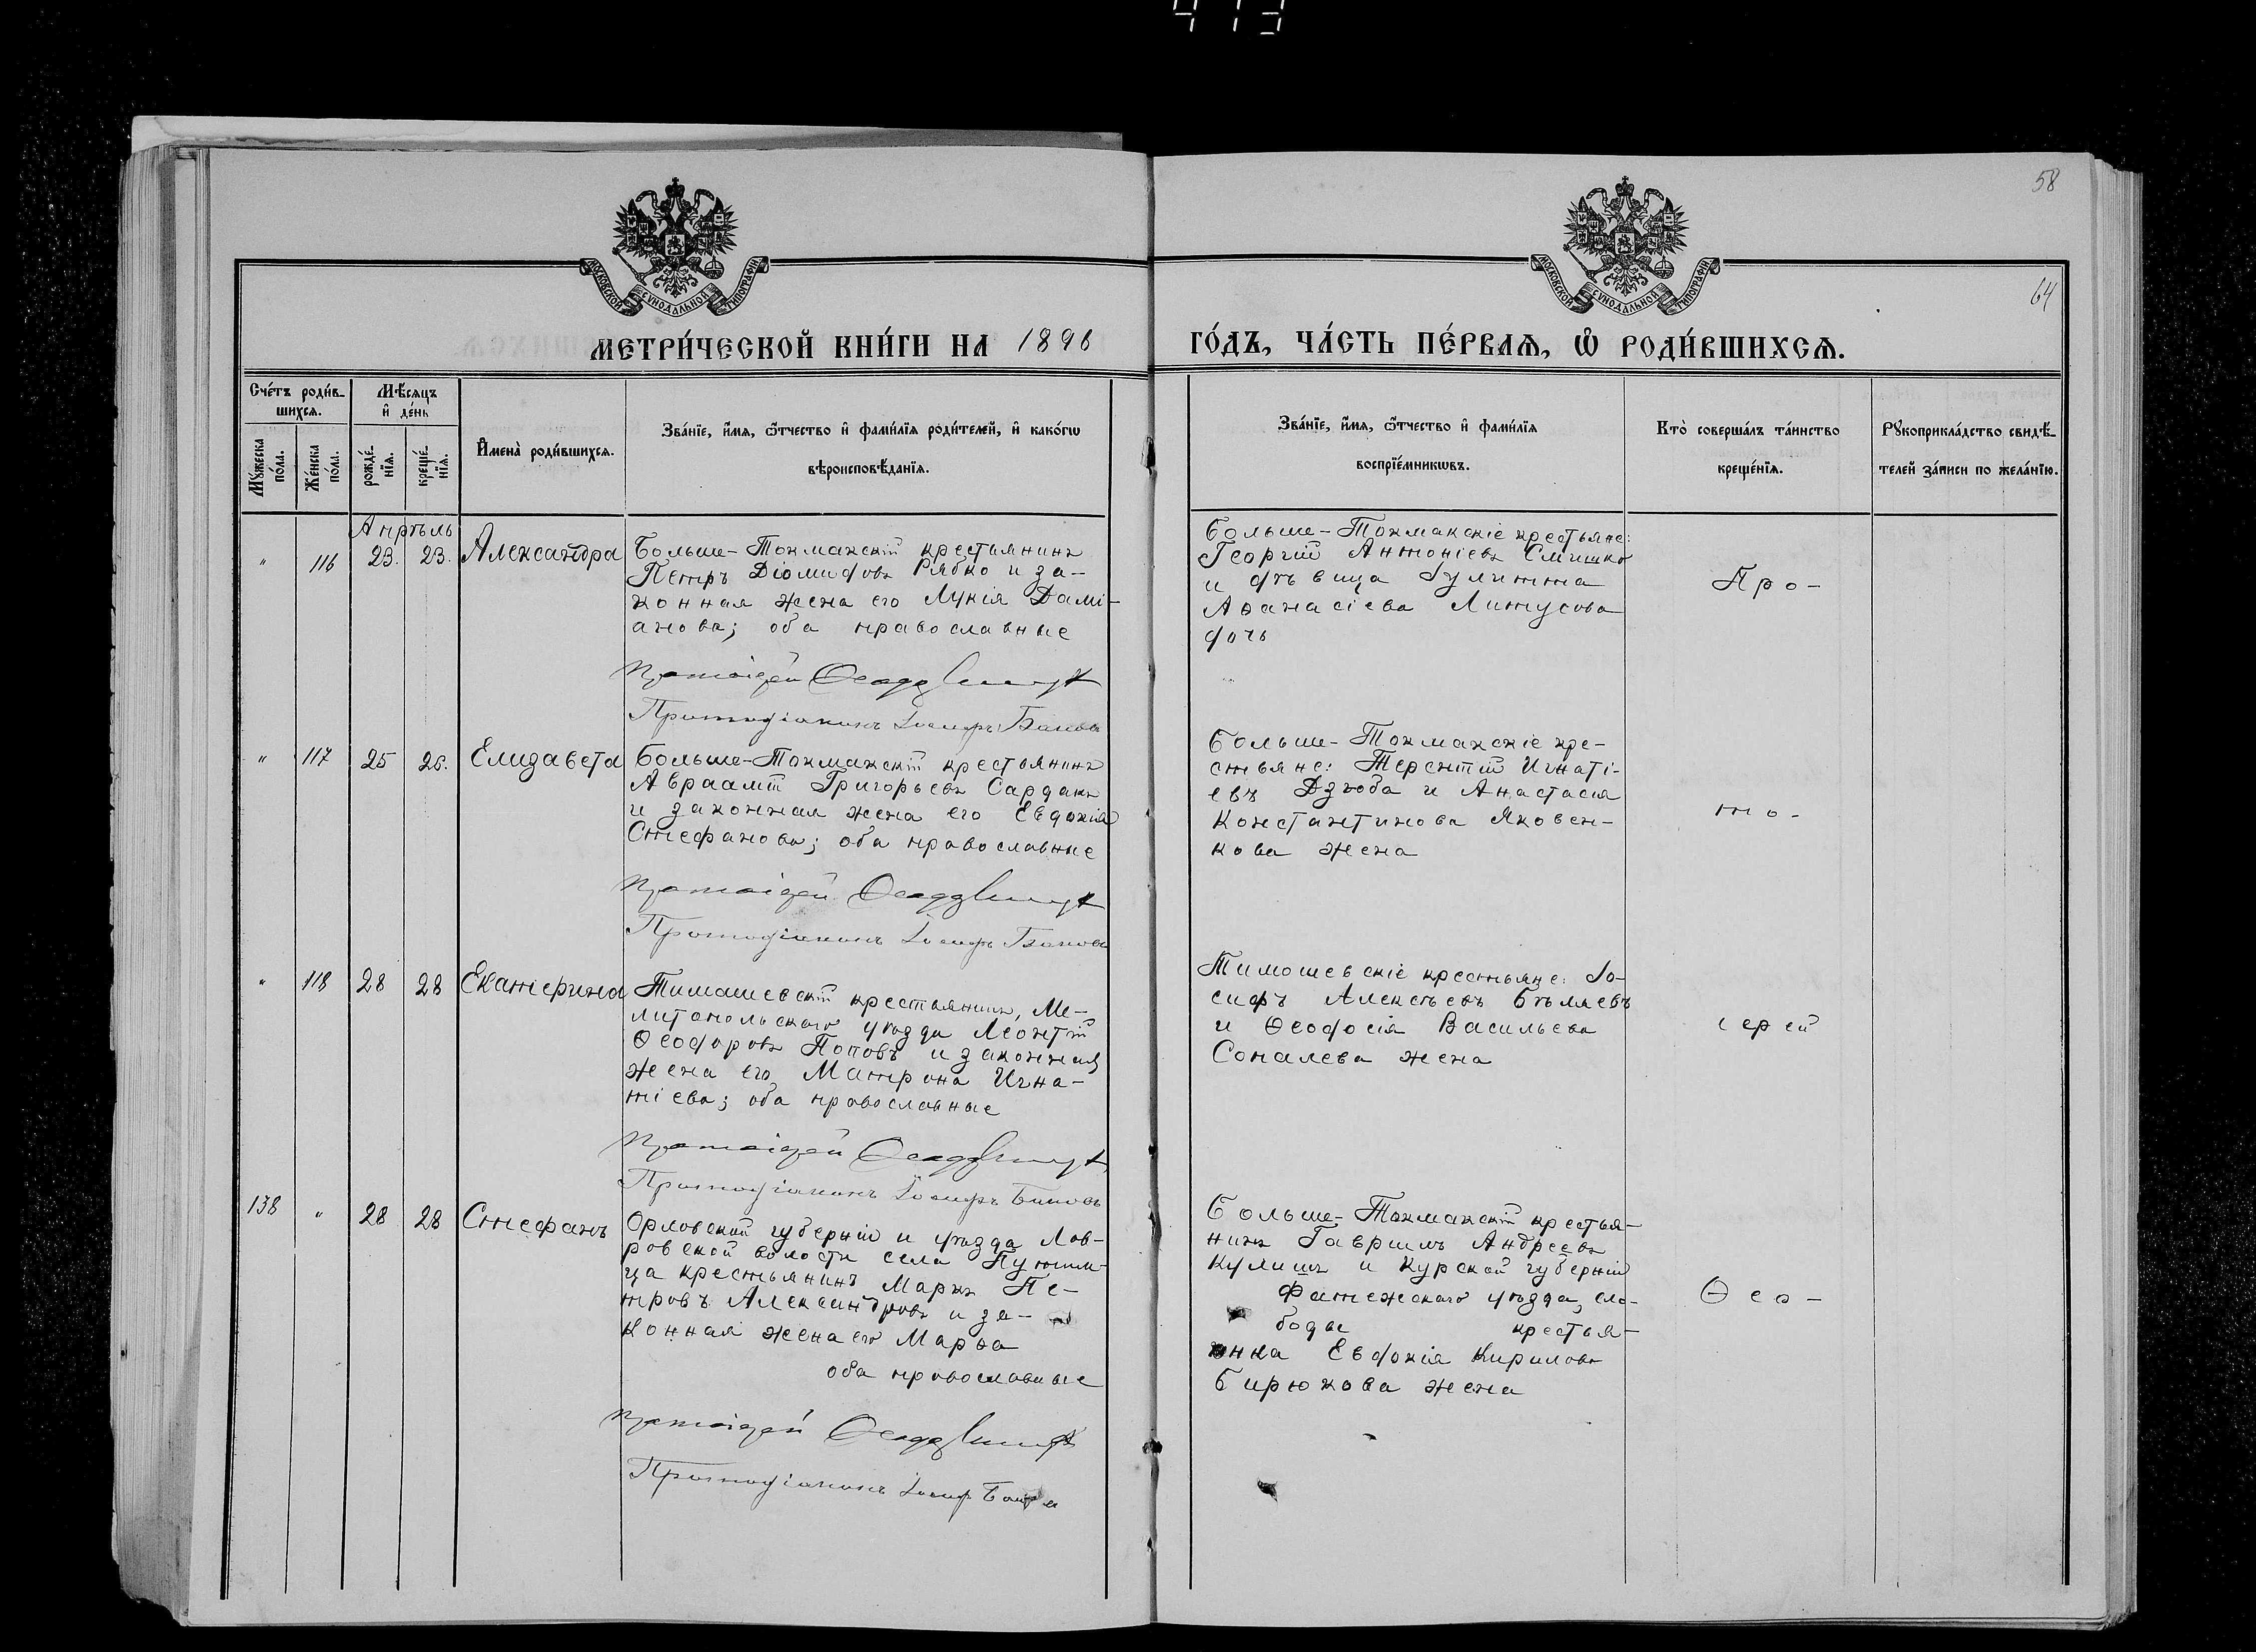 413
58
64
МОСКОВСКОЙ СѴНОДАЛЬНОЙ ТИПОГРАФІИ
МОСКОВСКОЙ СѴНОДАЛЬНОЙ ТИПОГРАФІИ
МЕТРИ́ЧЕСКОЙ КНИ́ГИ НА 1896
ГО́ДЪ, ЧА́СТЬ ПЕ́РВАѦ, Ѡ РОДИ́ВШИХСѦ.
Сче́тъ роди́в-
шихсѧ.
Мꙋ́жеска по́ла.
Же́нска по́ла.
Мѣ́сѧцъ
и҆ де́нь
рожде́-
нїѧ.
креще́-
нїѧ.
И҆мена̀ роди́вшихсѧ.
Зва́нїе, и҆́мѧ, ѻ҆́тчество и҆ фами́лїѧ роди́телей, и҆ како́гѡ
вѣроисповѣ́данїѧ.
Зва́нїе, и҆́мѧ, ѻ҆́тчество и҆ фами́лїѧ
воспрїе́мникѡвъ.
Кто̀ соверша́лъ та́инство
креще́нїѧ.
Рꙋкоприкла́дство свидѣ́-
телей за́писи по жела́нїю.
Апрѣль
" 116 23. 23. Александра
Больше-Токмакскій крестьянинъ
Петръ Діомидовъ Рябко и за-
конная жена его Лукія Дамі-
анова; оба православные
Протоіерей
Протодіаконъ Іосифъ
Больше-Токмакскіе крестьяне:
Георгій Антоніевъ Смишко
и дѣвица Іулитта
Аѳанасіева Литусова
дочь
Про-
" 117 25 25. Елизавета
Больше-Токмакскій крестьянинъ
Авраамій Григорьевъ Сардакъ
и законная жена его Евдокія
Стефанова; оба православные
Протоіерей
Протодіаконъ Іосифъ
Больше-Токмакскіе кре-
стьяне: Терентій Игнаті-
евъ Дзюба и Анастасія
Константинова Яковен-
кова жена
то-
" 118 28 28 Екатерина
Тимашевскій крестьянинъ, Ме-
литопольскаго уѣзда Леонтій
Ѳеодоровъ Поповъ и законная
жена его Матрона Игна-
тіева; оба православные
Протоіерей
Протодіаконъ Іосифъ
Тимошевскіе крестьяне: Іо-
сифъ Алексѣевъ Бѣляевъ
и Ѳеодосія Васильева
Сопалева жена
іерей
138 " 28 28 Стефанъ
Орловской губерніи и уѣзда Лав-
ровской волости села Путим-
ца крестьянинъ Маркъ Пе-
тровъ Александровъ и за-
конная жена его Марѳа
оба православные
Протоіерей
Протодіаконъ Іосифъ
Больше-Токмакскій крестья-
нинъ Гавріилъ Андреевъ
Кулишъ и Курской губерніи
Фатежскаго уѣзда, сло-
боды крестья-
нка Евдокія Кирилова
Бирюкова жена
Ѳео-